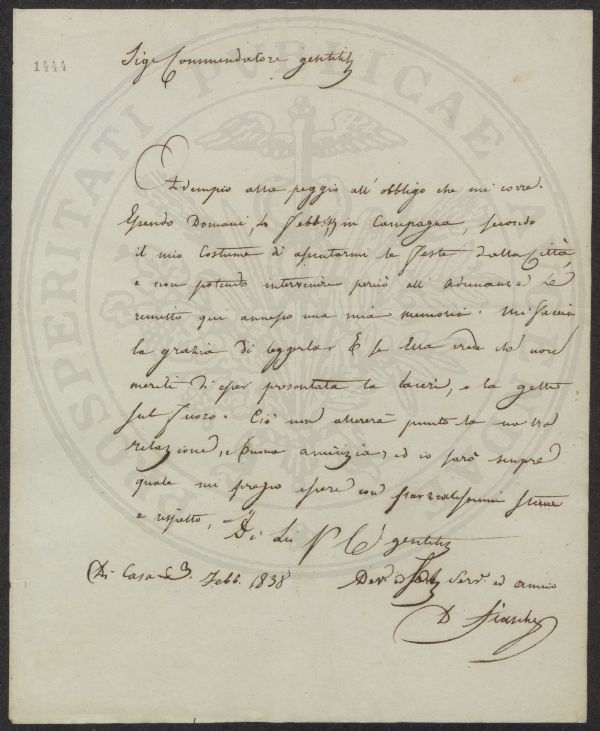 1444
Sig. Commendatore gentilis
Adempio alla peggio all' obbligo che mi corre.
Essendo Domani, 4 Febb. in Campagna, secondo
il mio Costume di assentarmi le Feste dalla Città
e non potendo intervenire perciò all' adunanza Le
rimetto qui annesso una mia memoria. Mi faccia
la grazia di leggerla. E se Ella crede che non
meriti di esser presentata la laceri, o la getti
sul fuoco. Ciò non altererà punto la nostra
relazione, e buona amicizia, ed io sarò sempre
quale mi pregio essere con stima
e rispetto,
Di Lei gentilis
Di Casa 3 Febb. 1838
Dev. ed Serv. ed amico
D
PROSPERITATI PUBLICAE